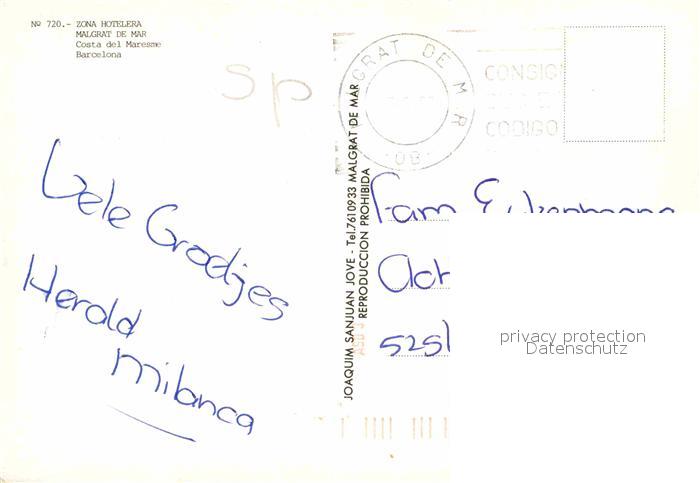 Nº 720.- ZONA HOTELERA
MALGRAT DE MAR
Costa del Maresme
Barcelona
Sp
GRAT DE M R
08
CONSIG
CODIGO
JOAQUIM SANJUAN JOVE - Tel.7610933 MALGRAT DE MAR
REPRODUCCION PROHIBIDA
Vele Groetjes
Herald
Milanca
Fam
Ach
525
privacy protection
Datenschutz